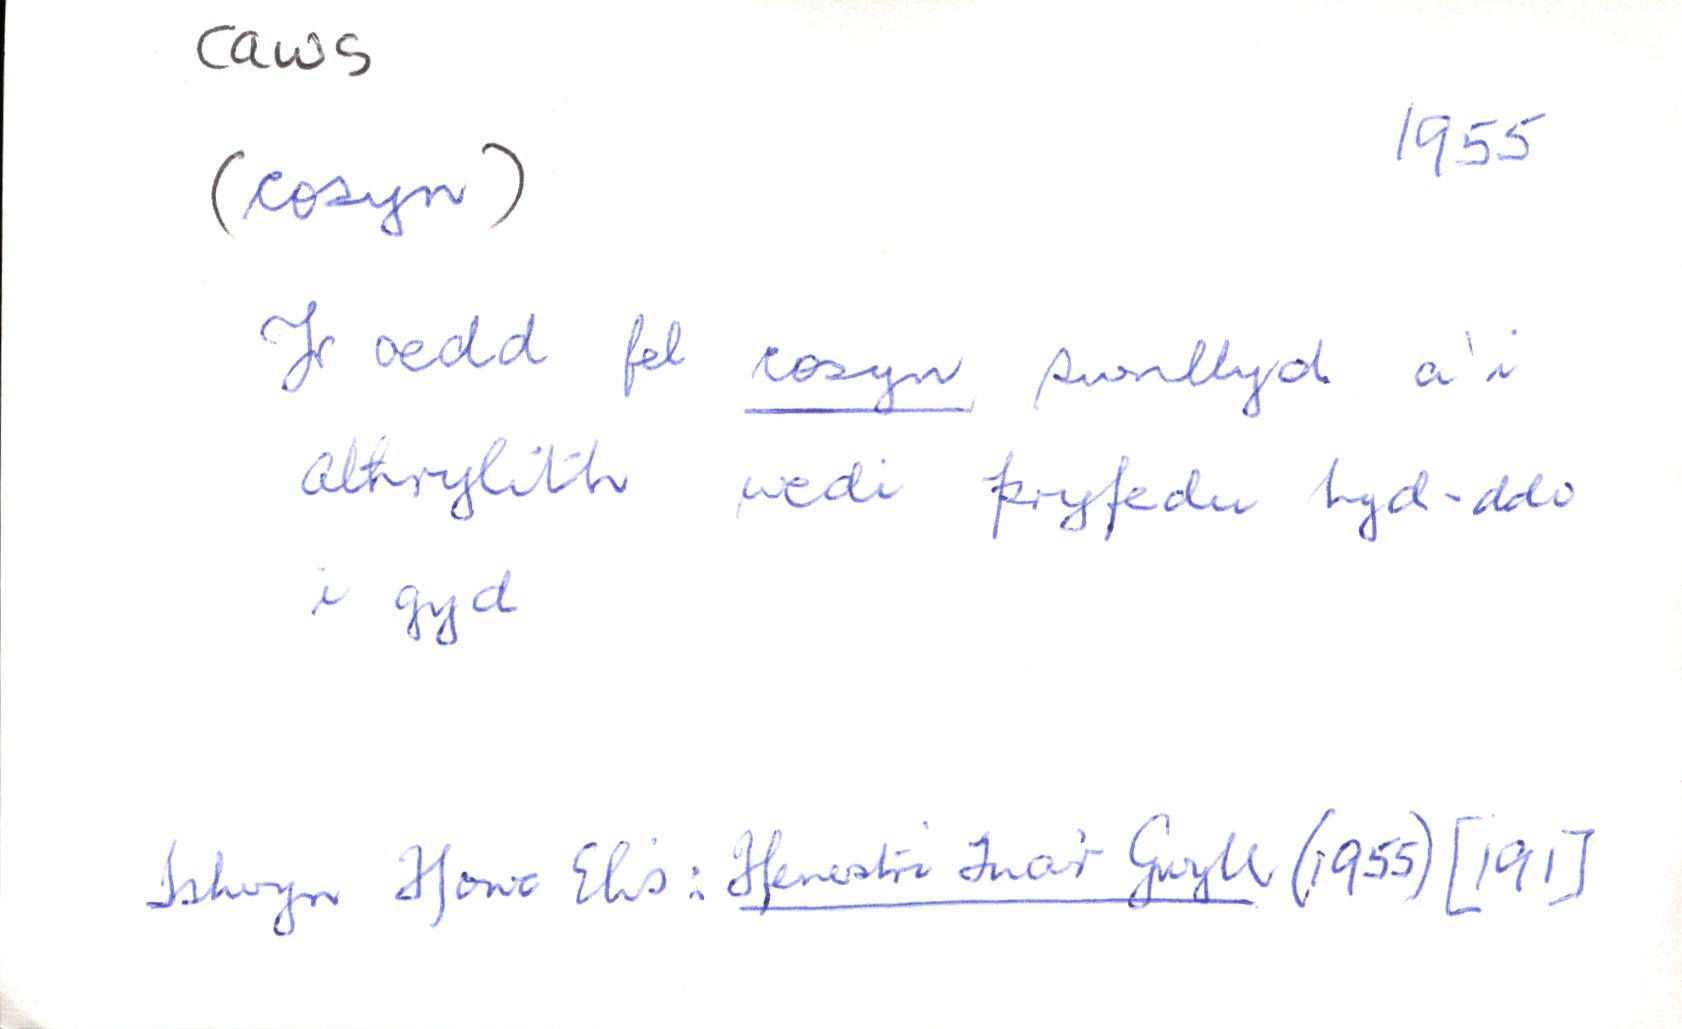 caws
1955
(cosyn)
Yr oedd fel cosyn swnllyd a'i
athrylith wedi pryfedu hyd-ddo
i gyd
Islwyn Ffowc Elis: Ffenestri Tua'r Gwyll (1955) [191]